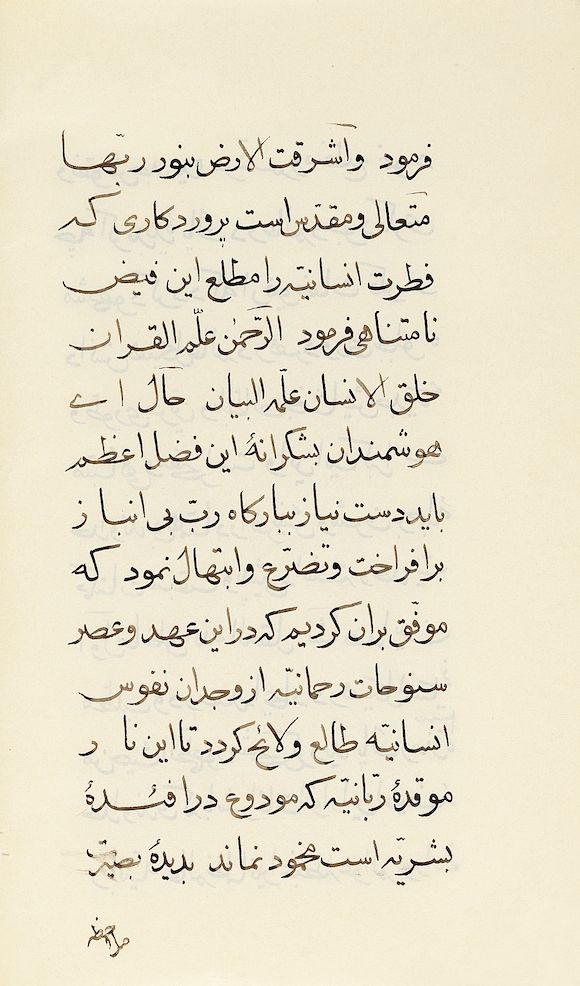 فرمود وأشرقت الارض بنور ربّها
متعالی ومقدّس است پروردکاری که
فطرت انسانیّه را مطلع این فیض
نامتناهی فرمود الرّحمٰن علّم القران
خلق الانسان علّمه البیان حال ای
هوشمندان بشکرانهٔ این فضل اعظم
باید دست نیاز ببارکاه ربّ بی انباز
برافراخت وتضرّع وابتهال نمود که
موفّق بران کردیم که در این عهد وعصر
سنوحات رحمانیّه از وجدان نفوس
انسانیّه طالع ولائح کردد تا این نار
موقدهٔ ربّانیّه که مودوع در افئدهٔ
بشریّه است مخمود نماند بدیدهٔ بصیرت
ملاحظه